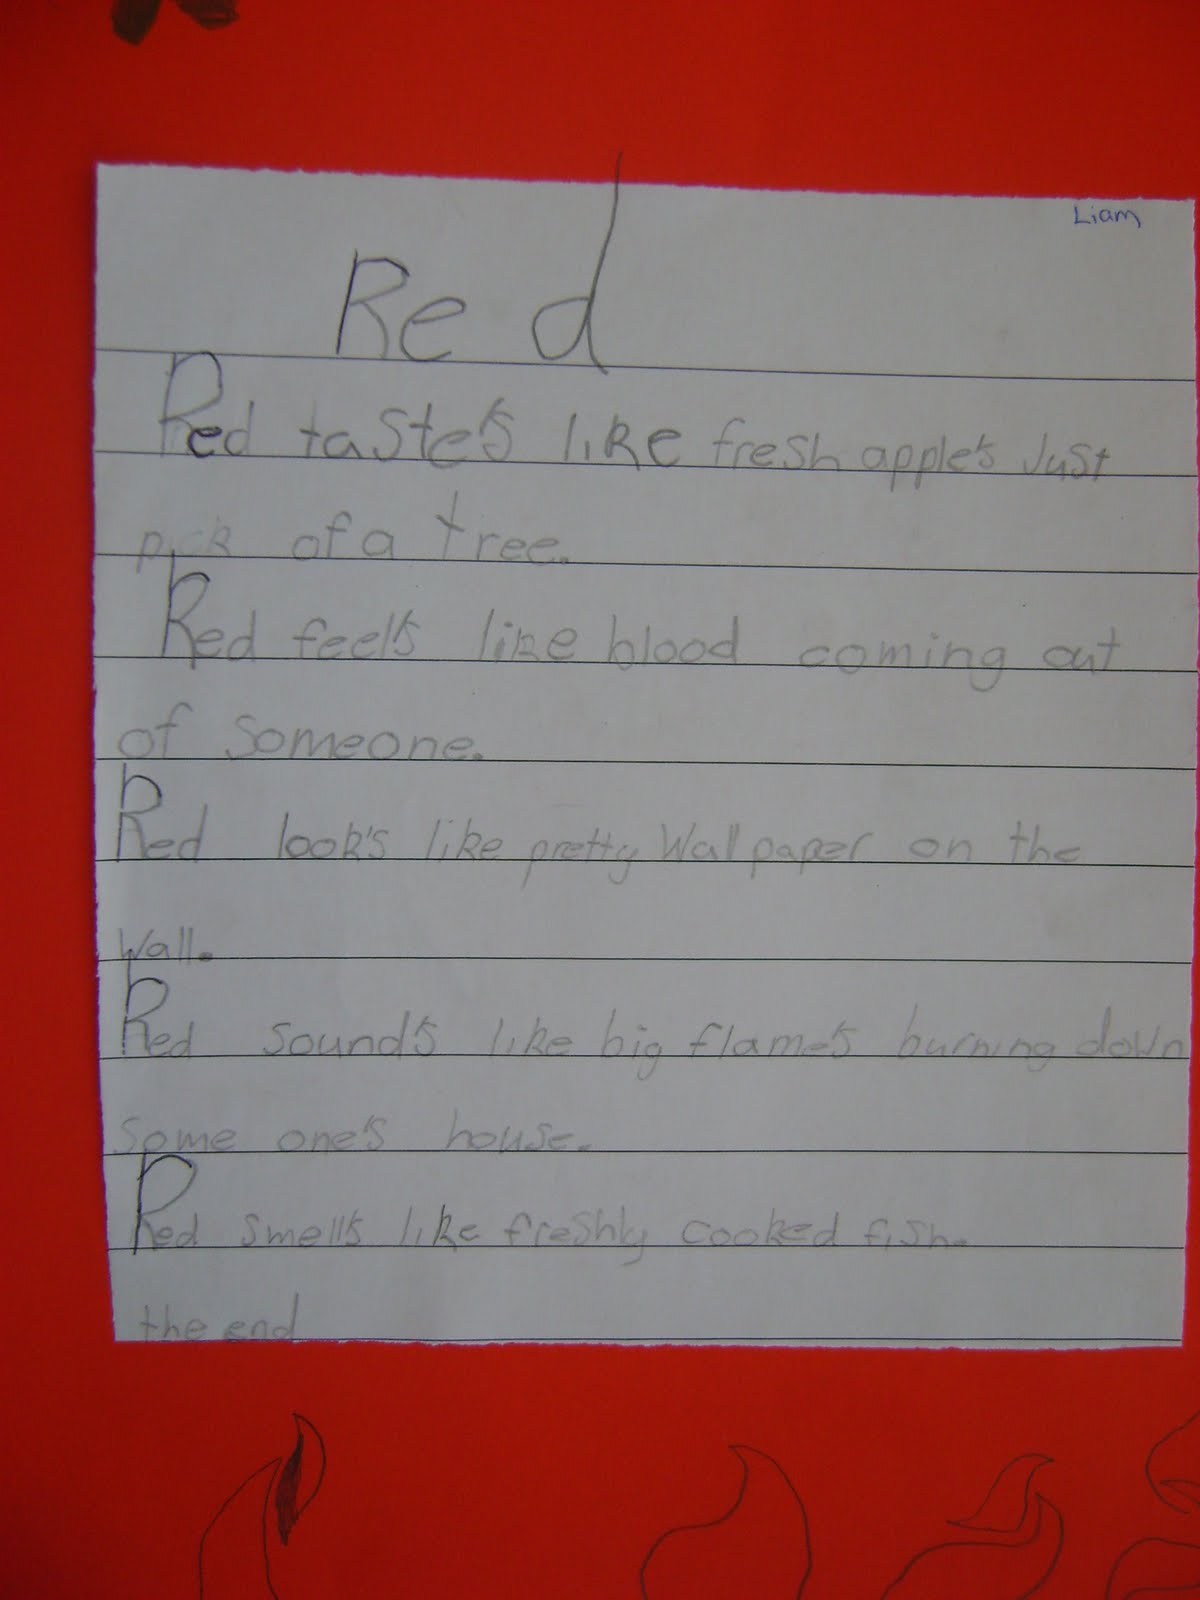 Liam
Red
Red taste's like fresh apple's Just
pick of a tree.
Red feel's like blood coming out
of someone.
Red look's like pretty Wall paper on the
Wall.
Red sound's like big flame's burning down
some one's house.
Red smell's like freshly cooked fish.
the end